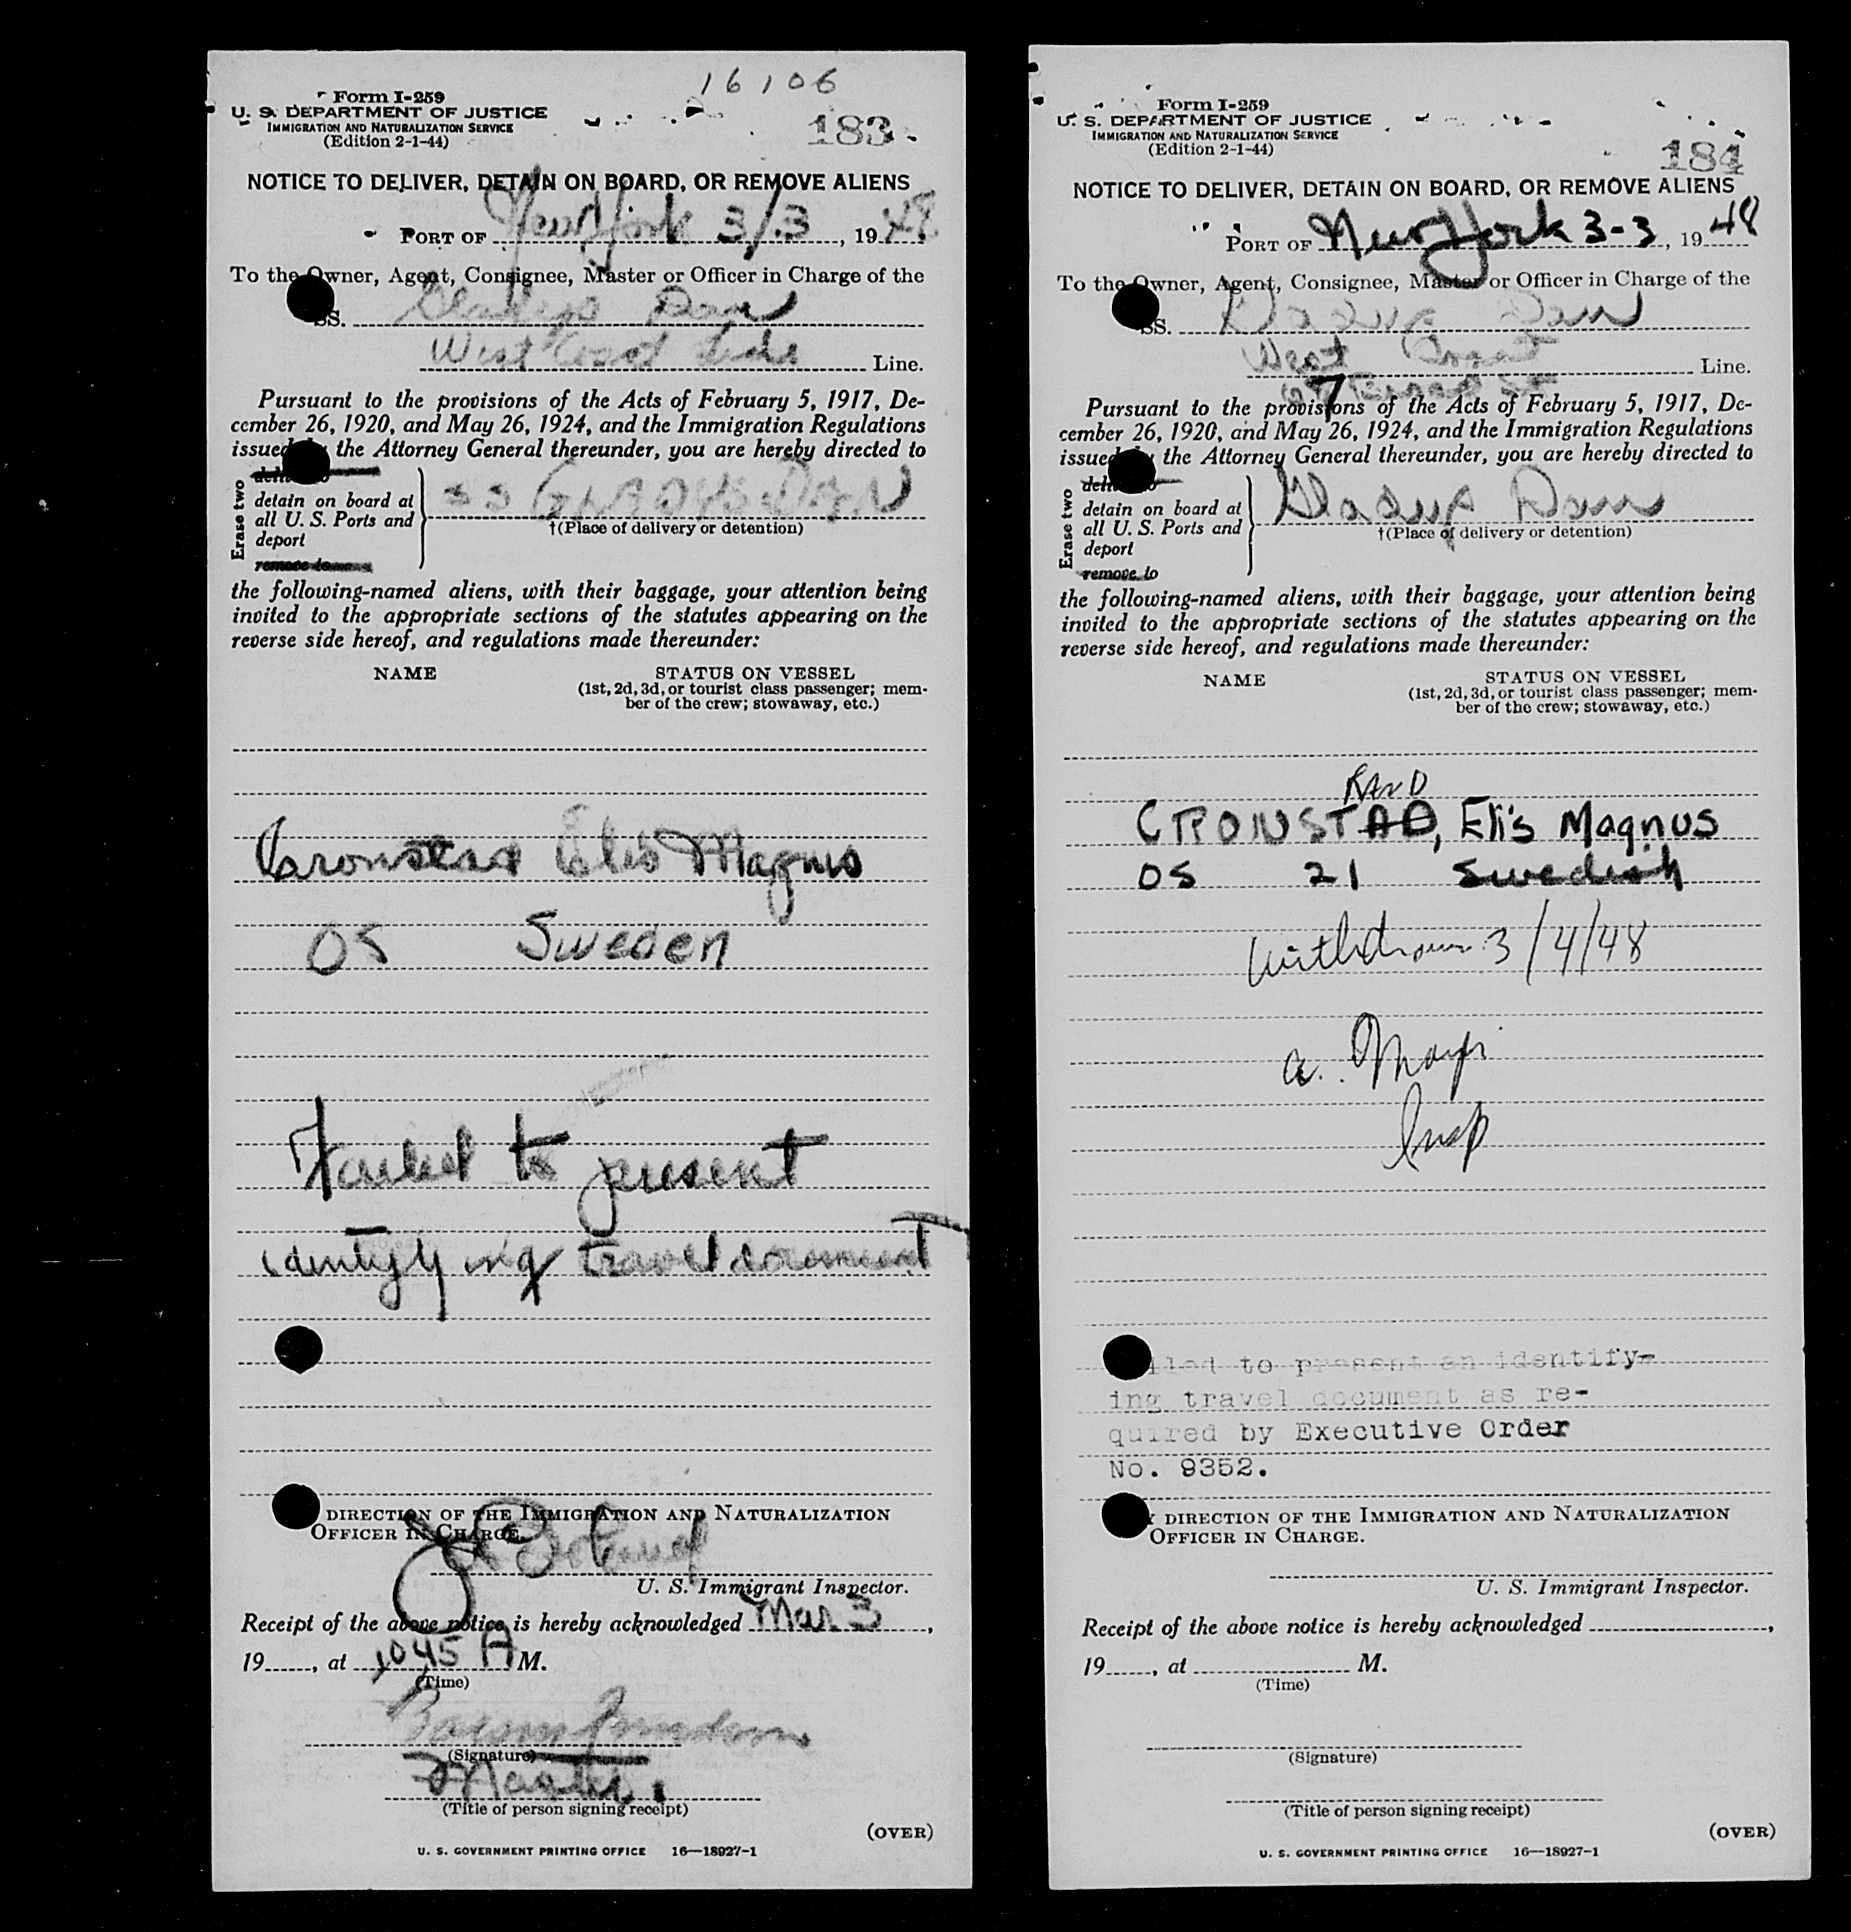 16106
Form I-259
U. S. DEPARTMENT OF JUSTICE
IMMIGRATION AND NATURALIZATION SERVICE
(Edition 2-1-44)
183
NOTICE TO DELIVER, DETAIN ON BOARD, OR REMOVE ALIENS
PORT OF New York 3/3, 1948
To the Owner, Agent, Consignee, Master or Officer in Charge of the
SS. Gladys Dan
West Coast Line Line.
Pursuant to the provisions of the Acts of February 5, 1917, De-
cember 26, 1920, and May 26, 1924, and the Immigration Regulations
issued the Attorney General thereunder, you are hereby directed to
Erase two
detain on board at
all U. S. Ports and
deport
remove to
SS GLADYS DAN
†(Place of delivery or detention)
the following-named aliens, with their baggage, your attention being
invited to the appropriate sections of the statutes appearing on the
reverse side hereof, and regulations made thereunder:
NAME
STATUS ON VESSEL
(1st, 2d, 3d, or tourist class passenger; mem-
ber of the crew; stowaway, etc.)
Cronstad Elis Magnus
OS Sweden
Failed to present
identifying travel document
DIRECTION OF THE IMMIGRATION AND NATURALIZATION
OFFICER IN CHARGE.
U. S. Immigrant Inspector.
Receipt of the above notice is hereby acknowledged Mar 3,
19, at 1045 A M.
(Time)
(Signature)
Master
(Title of person signing receipt)
(OVER)
U. S. GOVERNMENT PRINTING OFFICE 16—18927-1
Form I-259
U. S. DEPARTMENT OF JUSTICE
IMMIGRATION AND NATURALIZATION SERVICE
(Edition 2-1-44)
184
NOTICE TO DELIVER, DETAIN ON BOARD, OR REMOVE ALIENS
PORT OF New York 3-3, 1948
To the Owner, Agent, Consignee, Master or Officer in Charge of the
SS. Gladys Dan
West Coast Line.
Pursuant to the provisions of the Acts of February 5, 1917, De-
cember 26, 1920, and May 26, 1924, and the Immigration Regulations
issued the Attorney General thereunder, you are hereby directed to
Erase two
detain on board at
all U. S. Ports and
deport
remove to
Gladys Dan
†(Place of delivery or detention)
the following-named aliens, with their baggage, your attention being
invited to the appropriate sections of the statutes appearing on the
reverse side hereof, and regulations made thereunder:
NAME
STATUS ON VESSEL
(1st, 2d, 3d, or tourist class passenger; mem-
ber of the crew; stowaway, etc.)
RAND
CRONSTAD, Elis Magnus
OS 21 Swedish
Withdrawn 3/4/48
Insp
to present an identify-
ing travel document as re-
quired by Executive Order
No. 9352.
DIRECTION OF THE IMMIGRATION AND NATURALIZATION
OFFICER IN CHARGE.
U. S. Immigrant Inspector.
Receipt of the above notice is hereby acknowledged ,
19, at M.
(Time)
(Signature)
(Title of person signing receipt)
(OVER)
U. S. GOVERNMENT PRINTING OFFICE 16—18927-1